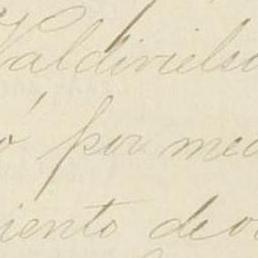 Valdivielso
ó por med
iento de os